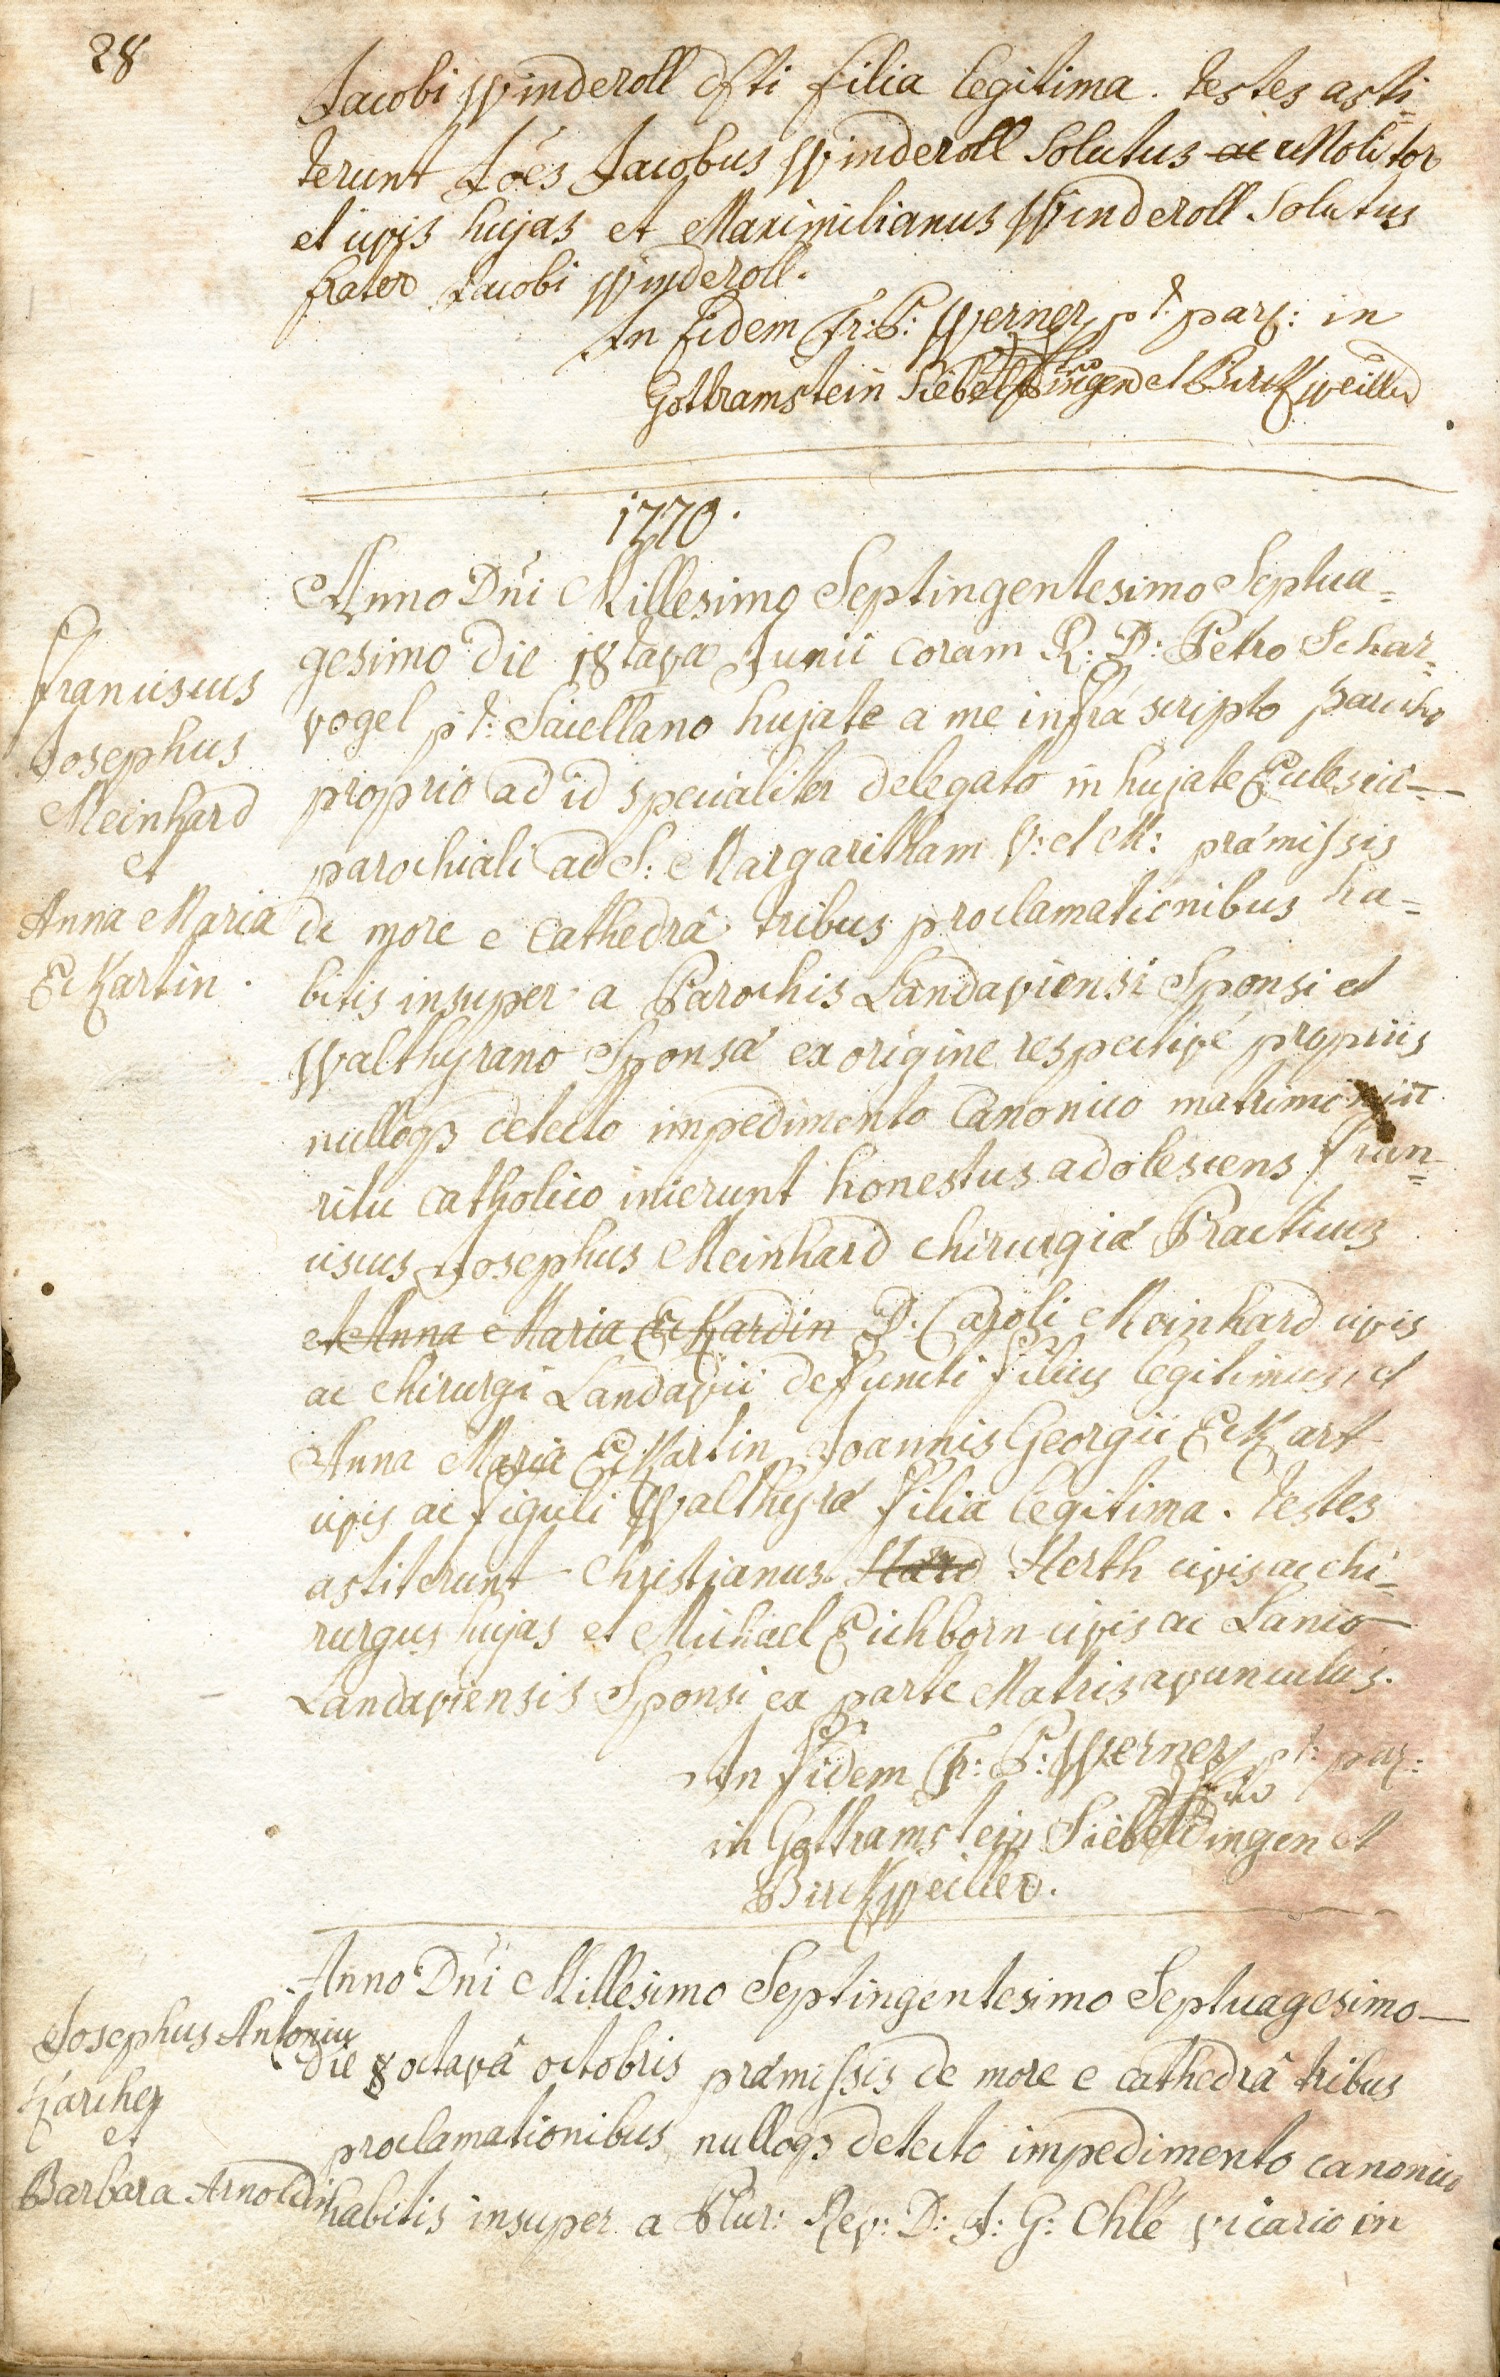 28
Jacobi Winderoll dfti filia legitima. testes asti-
terunt Joés Jacobus Winderoll solutus ac Molitor
et civis hujas et Maximilianus Winderoll solutus
frater Jacobi Winderoll.
In fidem Fr: P: Werner pt: par: in
Gottramstein Siebeldingen et Birckweiller
1770.
Anno Dni Millesimo Septingentesimo Septua=
gesimo die 18tava Junii coram R: D: Petro Schar=
vogel pt: Sacellano hujate a me infra scripto parocho
proprio ad id specialiter delegato in hujate Ecclesiâ
parochiali ad S: Margaritham V: et M: praemissis
de more e cathedrâ tribus proclamationibus ha=
bitis insuper a Parochis Landaviensi Sponsi et
Walthyrano Sponsae ex origine respective propriis
nulloq3 detecto impedimento Canonico matrimonium
ritu catholico inierunt honestus adolescens Fran=
ciscus Josephus Meinhard chirurgiae Practicus
et Anna Maria Eckardin D. Caroli Meinhard civis
ac chirurgi Landavii defuncti filius legitimus, et
Anna Maria Eckartin Joannis Georgii Eckart
civis ac figuli Walthyrae filia legitima. testes
astiterunt Christianus Hard Herth civis ac chi=
rurgus hujas et Michael Eichborn civis ac Lanio
Landaviensis Sponsi ex parte Matris avunculus.
In fidem Fr: P: Werner pt: par:
in Gottramstein Siebeldingen et
Birckweiller.
Franciscus
Josephus
Meinhard
et
Anna Maria
Eckartin.
Anno Dni Millesimo Septingentesimo Septuagesimo
die 8 octavâ octobris praemissis de more e cathedrâ tribus
proclamationibus nulloq3 detecto impedimento canonico
habitis insuper a Plur: Rev: D: J: G: Ohlé vicario in
Josephus Antonius
Kärcher
et
Barbara Arnoldin